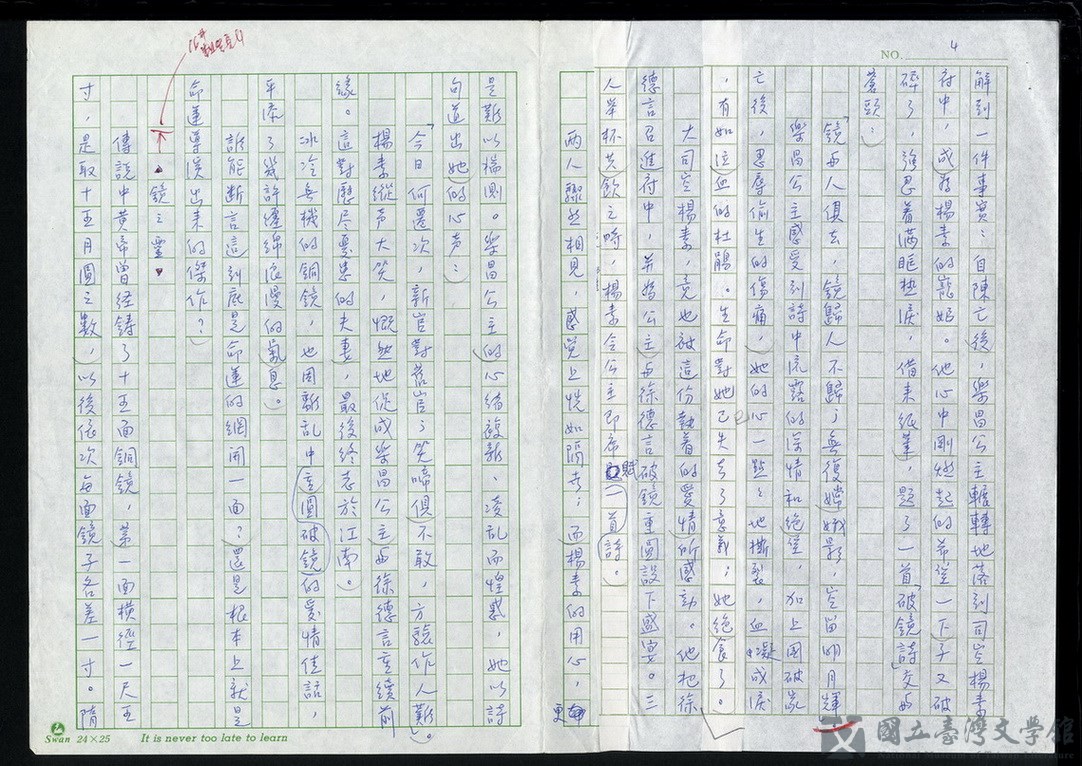 NO. 4
解到一件事實：自陳亡後，樂昌公主輾轉地落到司空楊素
府中，成為楊素的寵姬。他心中剛燃起的希望一下子又破
碎了，強忍着滿眶熱淚，借來紙筆，題了一首「破鏡詩」交與
蒼頭：
「鏡與人俱去，鏡歸人不歸；無復嫦娥影，空留明月輝。」
樂昌公主感受到詩中流露的深情和絕望，加上國破家
亡後，忍辱偷生的傷痛，她的心一點點地撕裂，血凝成淚
，有如泣血的杜鵑。生命對她已失去了意義；她絕食了。
大司空楊素，竟也被這份執着的愛情所感動。他把徐
德言召進府中，並為公主與徐德言破鏡重圓設下盛宴。三
人舉杯共飲之時，楊素令公主即席賦一首詩。
兩人驟然相見，感覺上恍如隔世；而楊素的用心，更
是難以揣測。樂昌公主的心緒複雜、凌亂而惶惑，她以詩
句道出她的心声：
「今日何遷次，新官對舊官；笑啼俱不敢，方驗作人難。」
楊素縱声大笑，慨然地促成樂昌公主與徐德言重續前
緣。這對歷尽憂患的夫妻，最後終老於江南。
冰冷無機的銅鏡，也因離亂中重圓破鏡的愛情佳話，
平添了幾許纏綿浪漫的氣息。
誰能斷言這到底是命運的網開一面？還是根本上就是
命運導演出來的傑作？
▲鏡之靈▼
傳說中黃帝曾経鑄了十五面銅鏡，第一面橫徑一尺五
寸，是取十五月圓之數，以後依次每面鏡子各差一寸。隋
Swan 24×25 It is never too late to learn
國立臺灣文學館
National Museum of Taiwan Literature